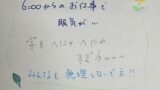 6:00からのお仕事で
眠気が…
字も へにゃ へにゃ
みんなも 無理しないでネ!!